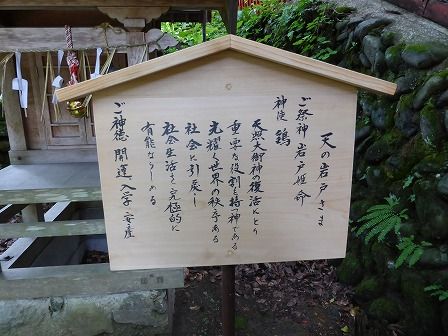 天の岩戸さま
ご祭神 岩戸姫命
神使 鶏
天照大御神の復活にとり
重要な役割を持つ神である
光耀く世界の秩序ある
社会に引戻し
社会生活を究極的に
有能ならしめる
ご神徳 開運 入学 安産